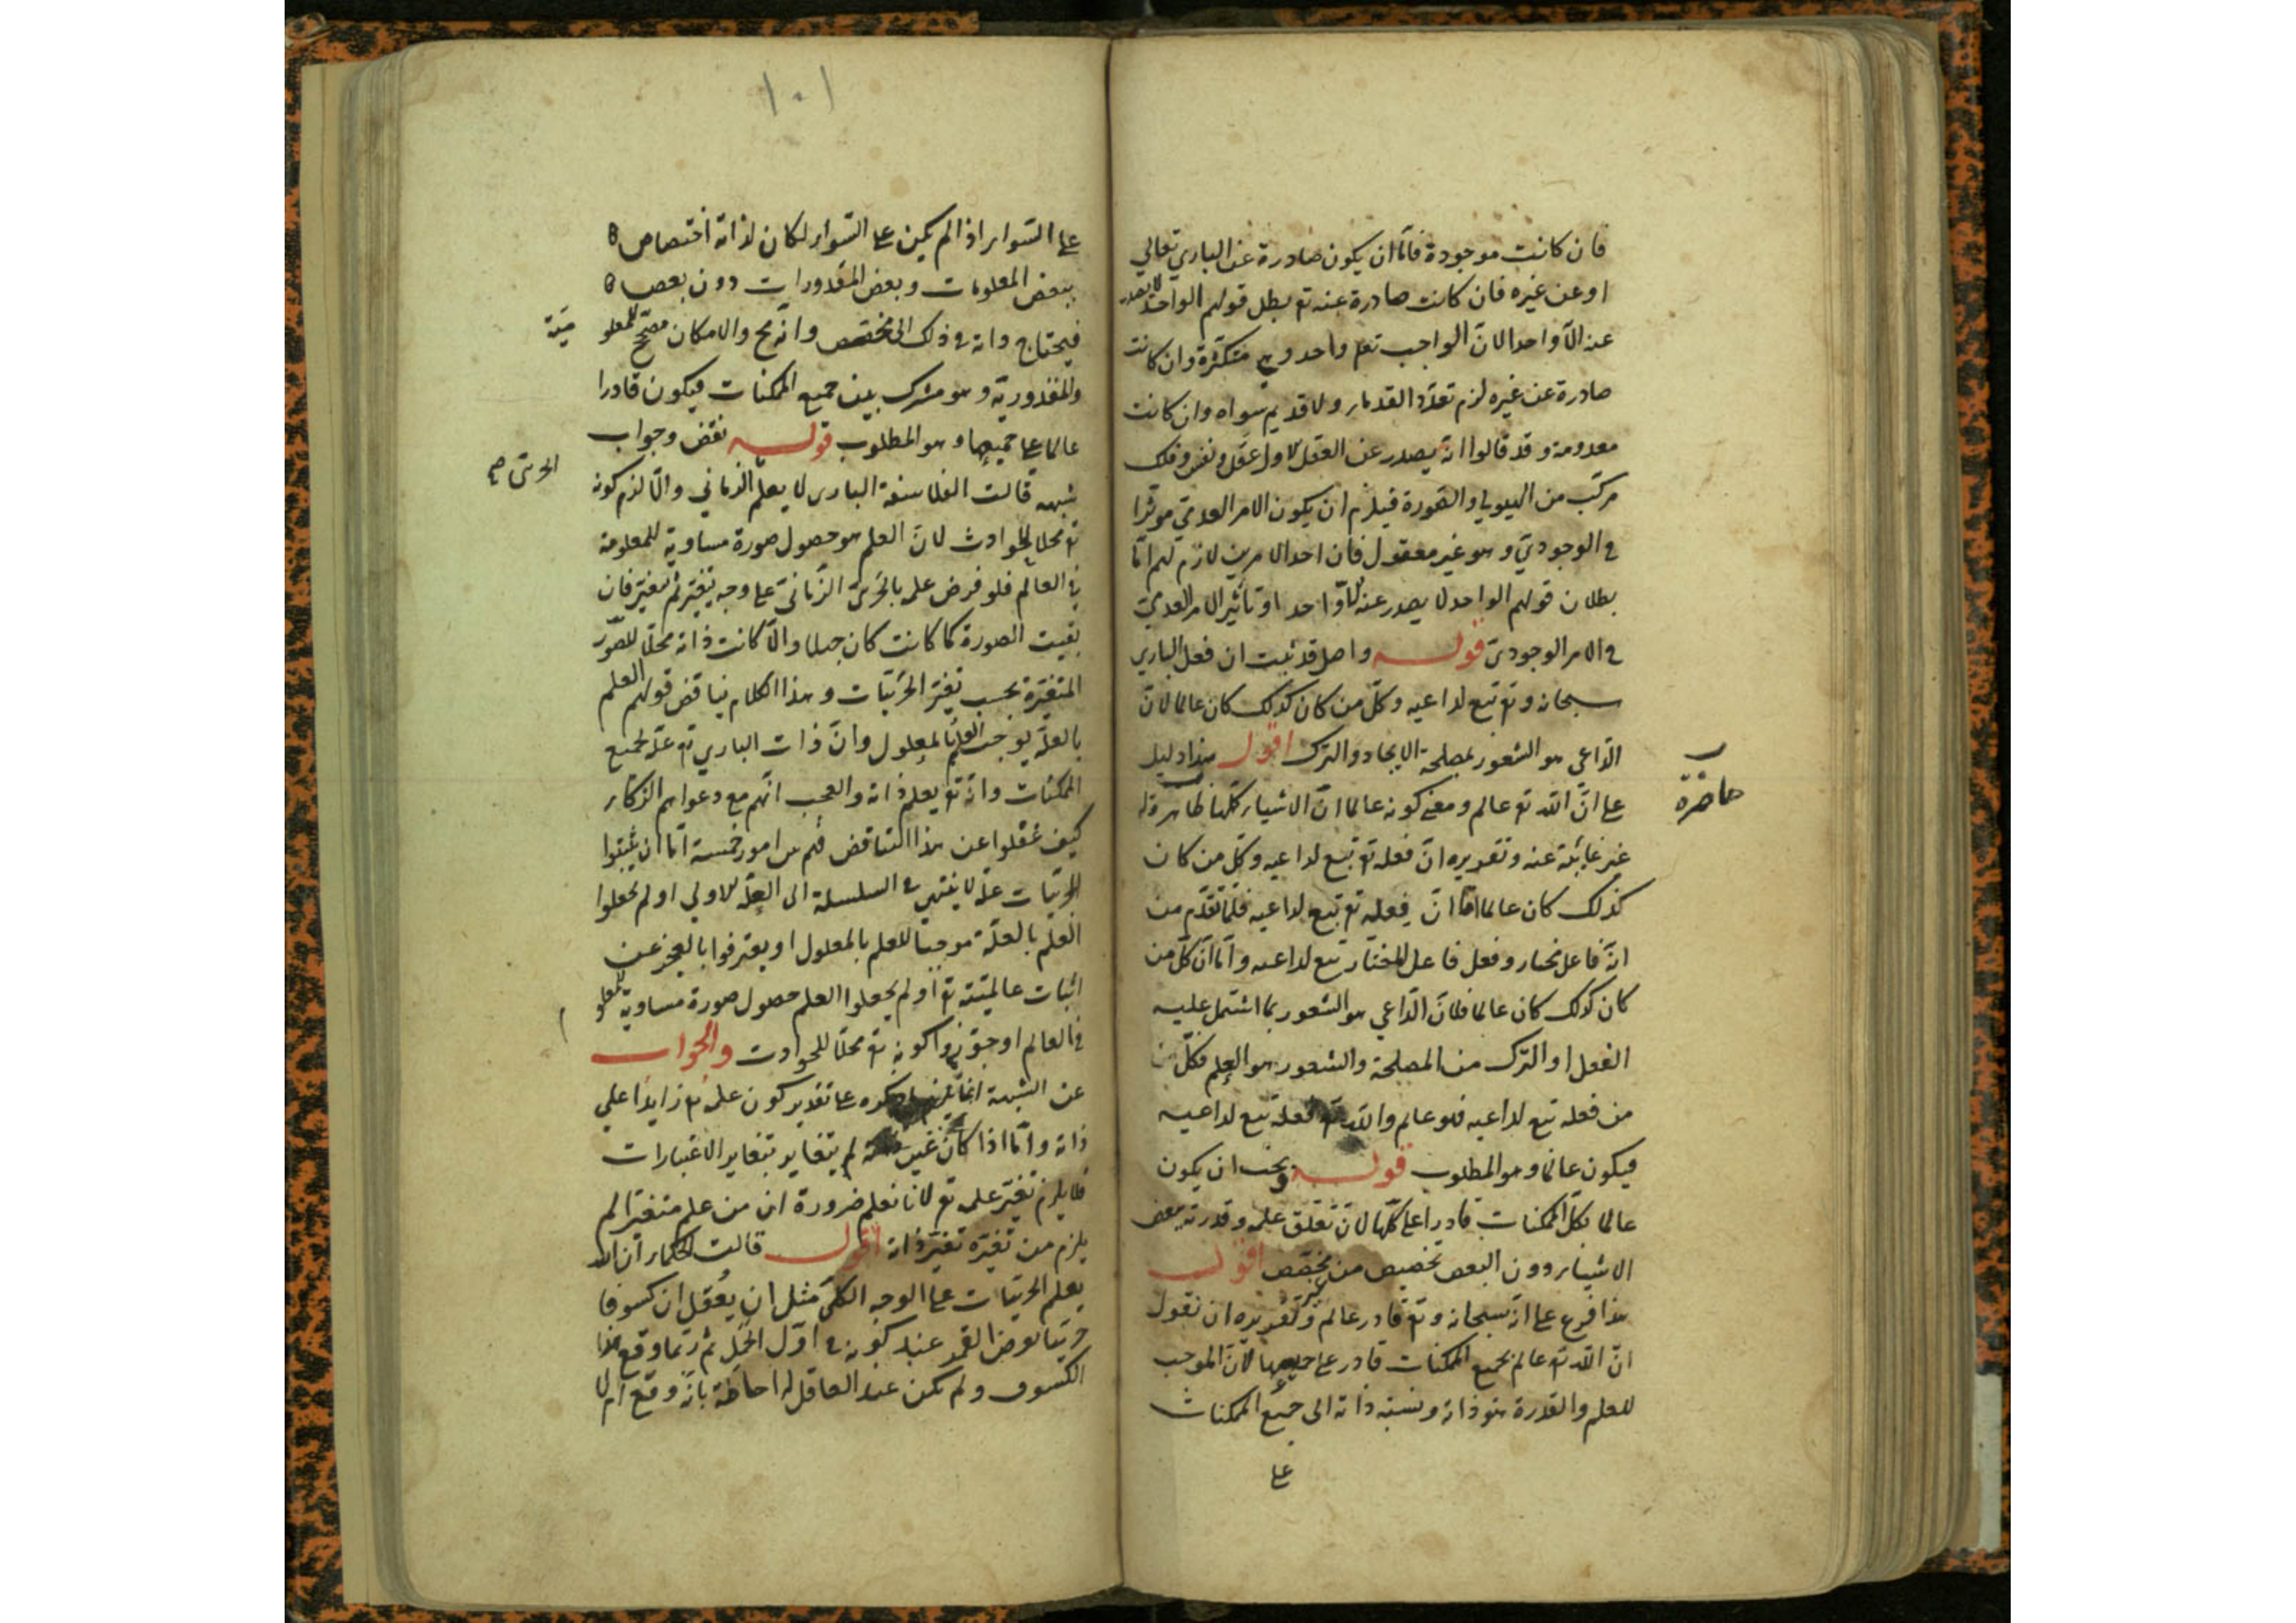 فان كانت موجودة فاما ان يكون صادرة عن الباري تعالى
او عن غيره فان كانت صادرة عنه تع بطل قولهم الواحد لا يصدر
عنه الا واحد لان الواجب تع واحد وهي متكثرة وان كانت
صادرة عن غيره لزم تعدد القدماء ولا قديم سواه وان كانت
معدومة وقد قالوا انه يصدر عن العقل الاول عقل ونفس وفلك
مركب من الهيولى والصورة فيلزم ان يكون الامر العدمي موثرا
في الوجودي وهو غير معقول فان احد الامرين لازم لهم اما
بطلان قولهم الواحد لا يصدر عنه الا واحد او تأثير الامر العدمي
في الامر الوجودي قوله واصل قد ثبت ان فعل الباري
سبحانه وتع تبع لداعيه وكل من كان كذلك كان عالما لان
الداعي هو الشعور بمصلحة الايجاد والترك اقول هذا دليل
على ان الله تع عالم ومعنى كونه عالما ان الاشياء كلها ظاهرة له
حاضرة
غير غائبة عنه وتقريره ان فعله تع تبع لداعيه وكل من كان
كذلك كان عالما اما ان فعله تع تبع لداعيه فلما تقدم من
انه فاعل مختار وفعل فاعل المختار تبع لداعيه واما ان كل من
كان كذلك كان عالما فلان الداعي هو الشعور بما اشتمل عليه
الفعل او الترك من المصلحة والشعور هو العلم فكل
من فعله تبع لداعيه فهو عالم والله تع فعله تبع لداعيه
فيكون عالما وهو المطلوب قوله ويجب ان يكون
عالما بكل الممكنات قادرا على كلها لان تعلق علمه وقدرته ببعض
الاشياء دون البعض تخصيص من غير مخصص اقول
هذا فرع على انه سبحانه وتع قادر عالم وتقريره ان نقول
ان الله تع عالم بجميع الممكنات قادر على جميعها لان الموجب
للعلم والقدرة هو ذاته ونسبة ذاته الى جميع الممكنات
على
١٠١
على السواء اذ لم يكن على السواء لكان لذاته اختصاص
ببعض المعلومات وبعض المقدورات دون بعض
فيحتاج ذاته في ذلك الى مخصص وانه مح والامكان مصحح للمعلو
مية
والمقدورية وهو مشترك بين جميع الممكنات فيكون قادرا
عالما على جميعها وهو المطلوب قوله نقض وجواب
شبهة قالت الفلاسفة الباري لا يعلم الزماني والا لزم كونه
الجزئي صح
تع محلا للحوادث لان العلم هو حصول صورة مساوية للمعلومة
في العالم فلو فرض علمه بالجزئي الزماني على وجه يتغير ثم تغير فان
بقيت الصورة كما كانت كان جهلا والا كانت ذاته محلا للصور
المتغيرة بحسب تغير الجزئيات وهذا الكلام يناقض قولهم العلم
بالعلة يوجب العلم بالمعلول وان ذات الباري تع علة لجميع
الممكنات وانه تع يعلم ذاته والعجب انهم مع دعواهم الذكاء
كيف غفلوا عن هذا التناقض فهم بين امور خمسة اما ان يثبتوا
للجزئيات علة لا ينتهي في السلسلة الى العلة الاولى او لم يجعلوا
العلم بالعلة موجبا للعلم بالمعلول او يعترفوا بالعجز عن
اثبات عالميته تع او لم يجعلوا العلم حصول صورة مساوية للمعلو
في العالم او جوزوا كونه تع محلا للحوادث والجواب
عن الشبهة انما يلزم ما ذكروه على تقدير كون علمه تع زايدا على
ذاته واما اذا كان عين ذاته لم يتغاير بتغاير الاعتبارات
فلا يلزم تغير علمه تع لانا نعلم ضرورة ان من علم متغيرا لم
يلزم من تغيره تغير ذاته اقول قالت الحكماء ان الله
يعلم الجزئيات على الوجه الكلي مثل ان يعقل ان كسوفا
جزئيا يعرض القمر عند كونه في اول الحمل ثم ربما وقع هذا
الكسوف ولم يكن عند العاقل له احاطة بانه وقع ام لا